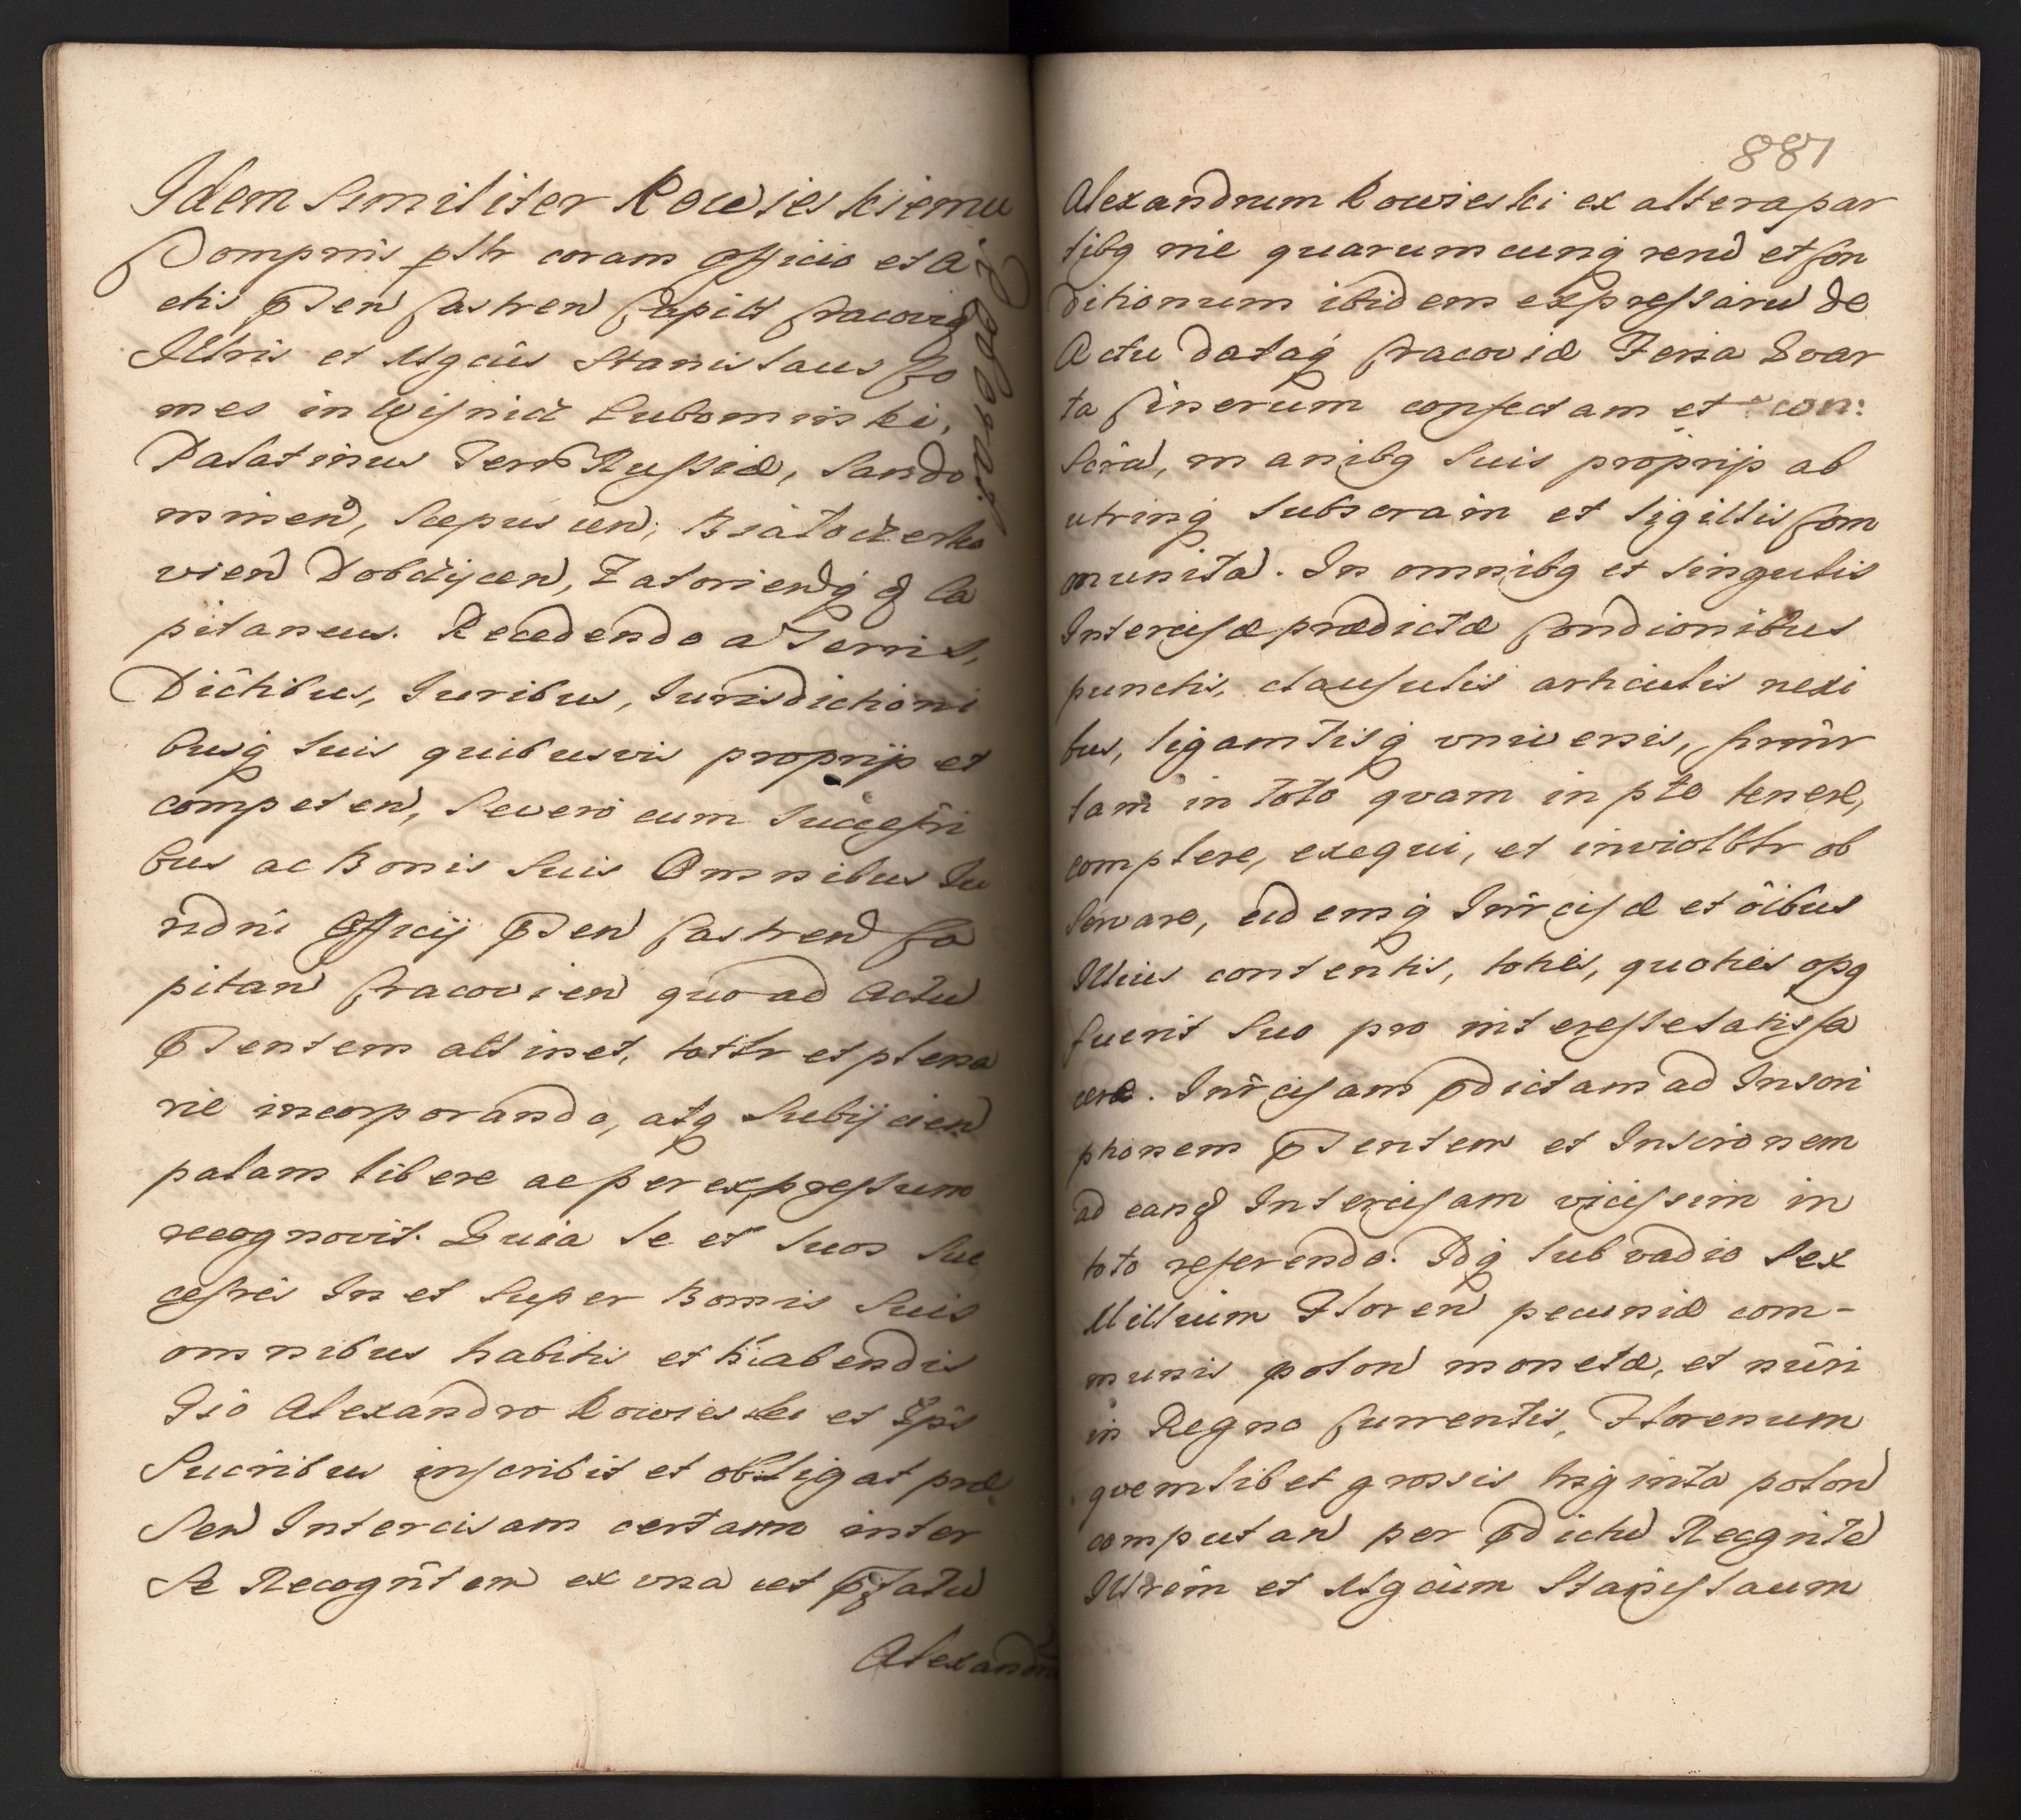 Idem Similiter Rowieskiemu
Comprns psltr coram Officio et A
ctis Pnten Castren Capitt Cracovien
Illtris et Mgcus Stanislaus Co
mes in Wisnicz Lubomirski,
Palatinus Terrs Russiæ, Sando
mirien, Scepusien, Białocerko
vien Dobczycen, Zatorienq & Ca
pitaneus. Recedendo a Terris,
Dictibus, Iuribus, Iurisdictioni
busq suis quibusvis proprijs et
competen, Seveso cum Succesri
bus ac Bonis Suis Omnibus Iu
risdni Officij Pnten Castren Ca
pitan Cracovien quo ad Actu
Pntentem attinet, tottr et plena
rie incorporando, atq Subijcien
palam libere ac per expressum
recognovit. Quia Se et Suos Suc
cesres In et Super Bonis Suis
omnibus habitis et habendis
Gso Alexandro Rowieski et Ips
Sucribus inscribit et obligat præ
Sen Intercisam certam inter
Se Recogntem ex una et Pfatu
Alexandru
887
Alexandrum Rowieski ex altera par
tibq rne quarumcunq rerû et Con
ditionum ibidem expressarû de
Actu dataq Cracoviæ Feria Qvar
ta Cinerum confectam et con:
Scrâ, manibq Suis proprijs ab
utrinq Subscram et Sigillis Com
munita. In omnibq et Singulis
Intercisæ prædictæ Condionibus
punctis, clausulis articulis nexi
bus, ligamtisq universis, firmr
tam in toto qvam in pto tenere,
complere, exequi, et inviolbtr ob
Servare, eidemq Intrcisæ et oibus
Illius contentis, toties, quoties opq
fuerit Suo pro interesse Satisfa
cere. Intrcisam Pdictam ad Inscri
ptionem Pntentem et Inscronem
ad eand Intercisam vicissim in
toto referendo. Idq Sub vadio Sex
Millium Floren pecuniæ com-
munis polon monetæ, et nuri
in Regno Currentis, Florenum
qvemlibet grossis triginta polon
computan per Pdictu Recgnte
Illtrem et Mgcum Stanislaum